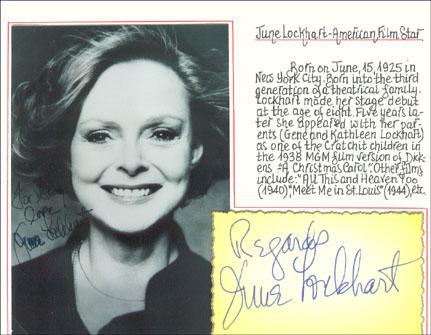 June Lockhart-American Film Star
Born on June, 15, 1925 in
New York City. Born into the third
generation of a theatrical family.
Lockhart made her stage debut
at the age of eight. Five years la-
ter she appeared with her par-
ents (Gene and Kathleen Lockhart)
as one of the Cratchit children in
the 1938 MGM film version of Dick-
ens "A Christmas Carol". Other films
include: "All This and Heaven Too"
(1940), "Meet Me in St. Louis" (1944), etc.
Love
June Lockhart
Regards
June Lockhart